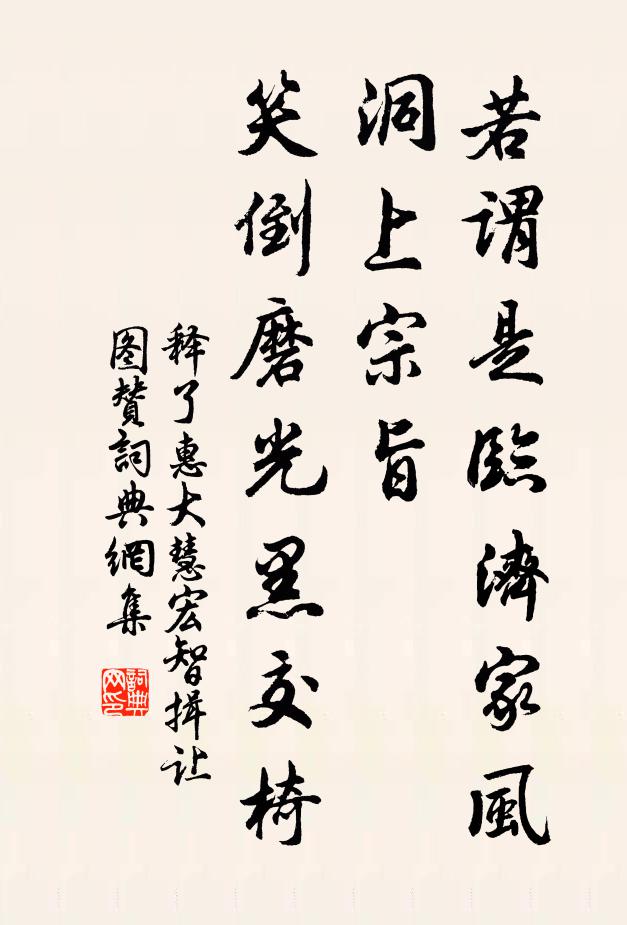 若謂是臨濟家風
洞上宗旨
笑倒磨光黑交椅
释了惠大慧宏智揖让
图赞詞典網集
詞典
网印